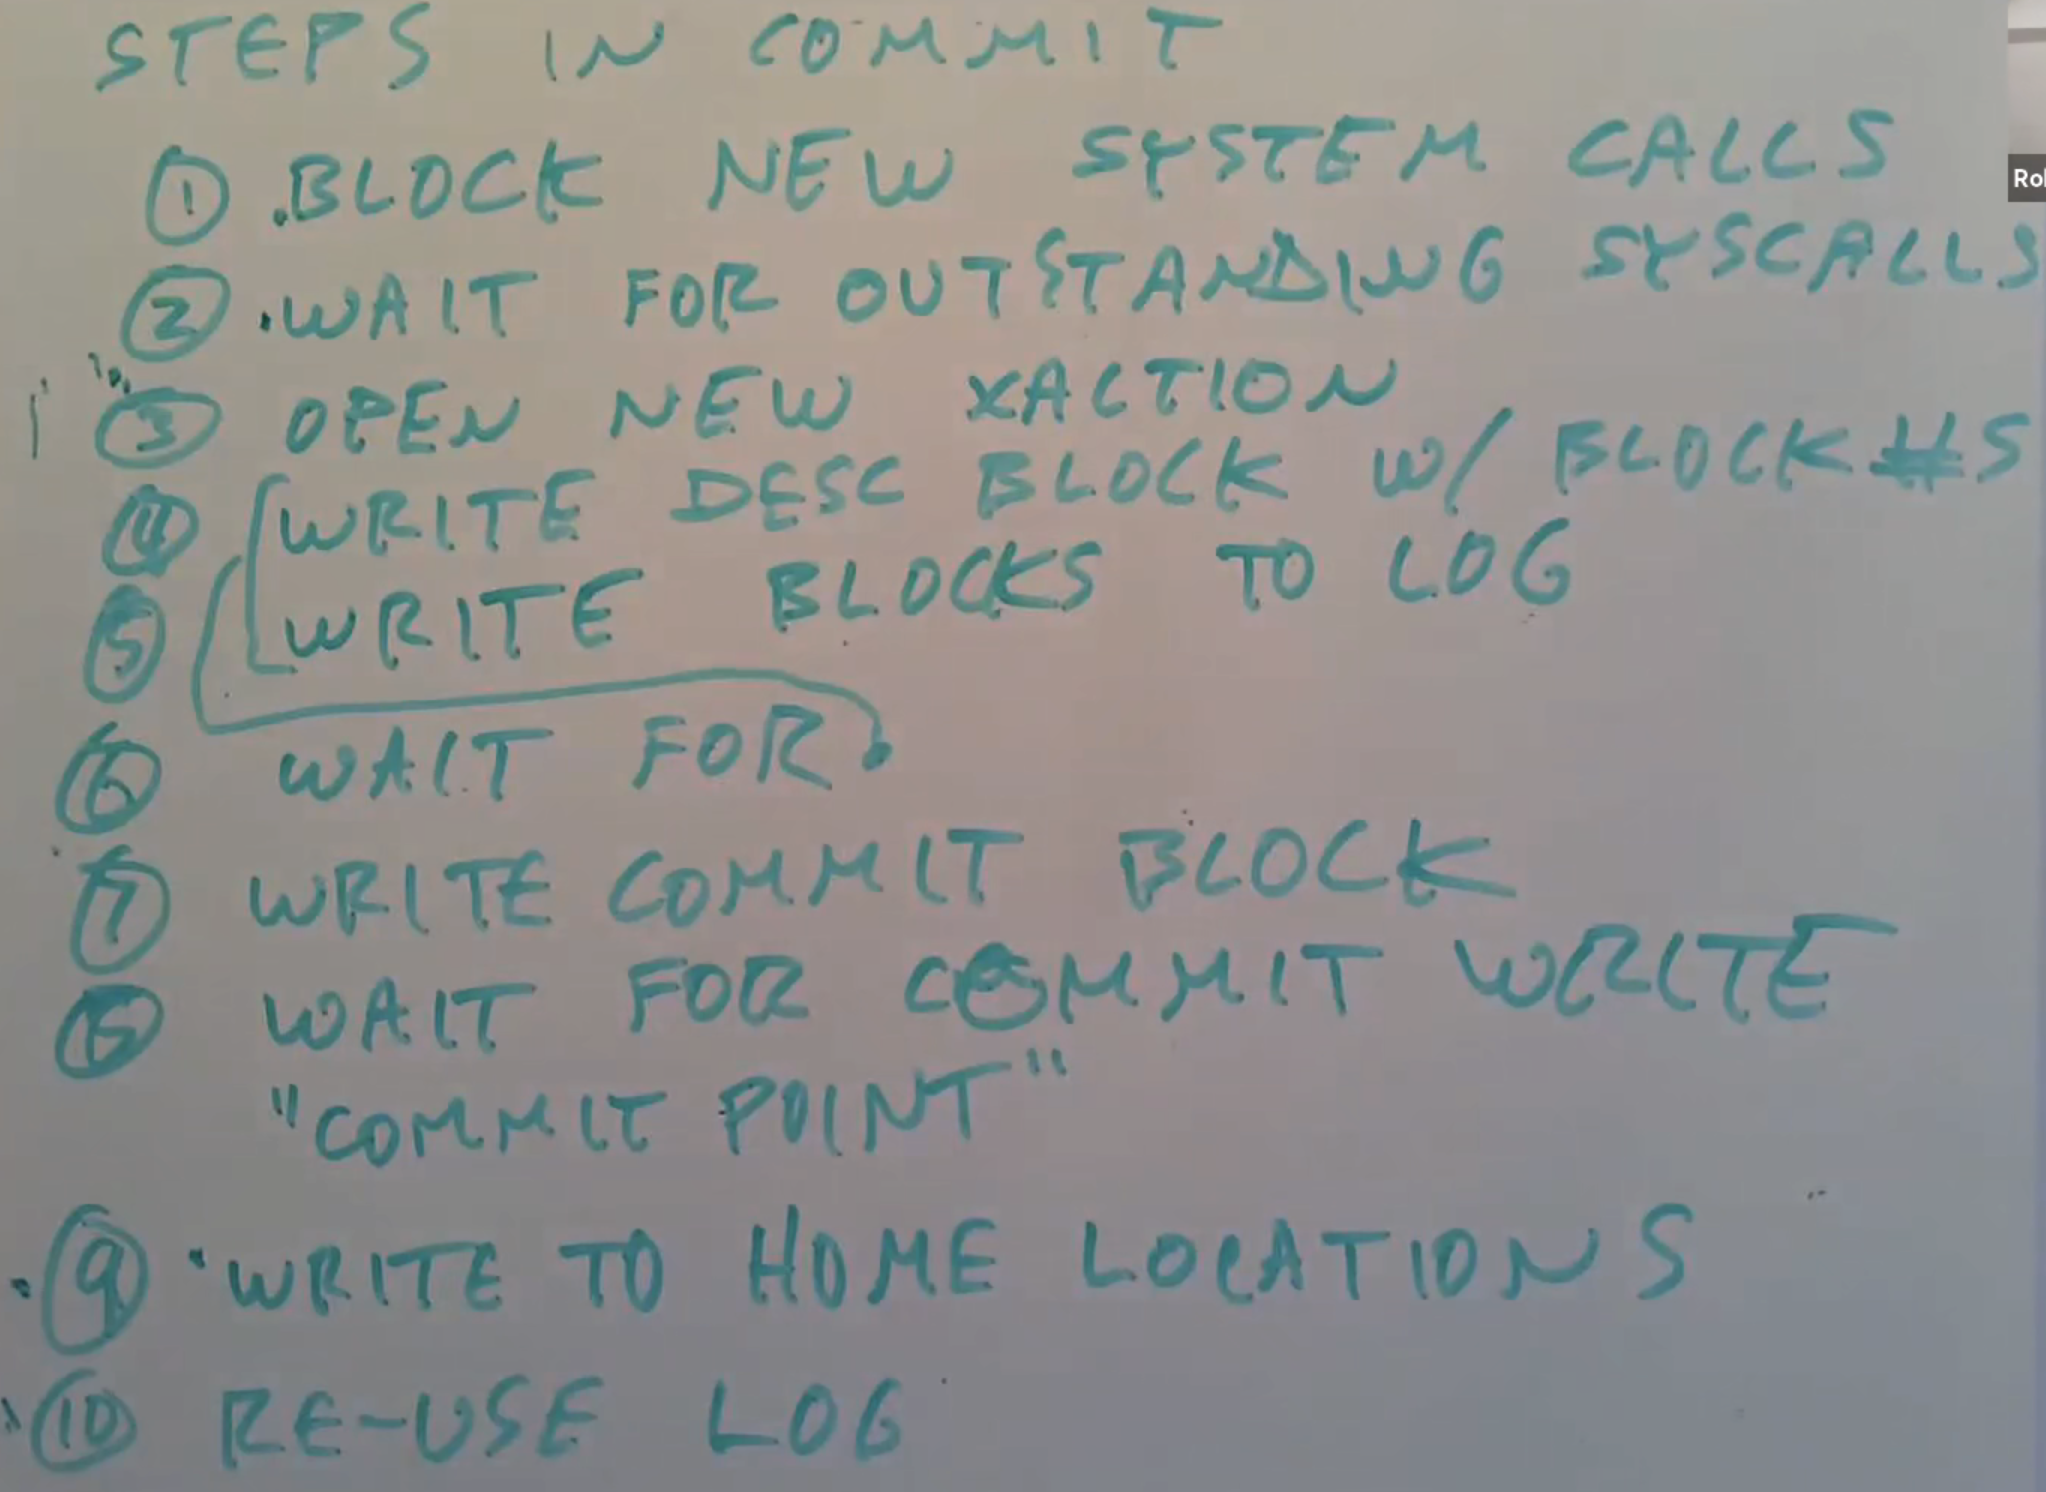 STEPS IN COMMIT
① .BLOCK NEW SYSTEM CALLS
② .WAIT FOR OUTSTANDING SYSCALLS
③ OPEN NEW XACTION
④ WRITE DESC BLOCK W/ BLOCK #S
⑤ WRITE BLOCKS TO LOG
⑥ WAIT FOR
⑦ WRITE COMMIT BLOCK
⑧ WAIT FOR COMMIT WRITE
"COMMIT POINT"
⑨ ·WRITE TO HOME LOCATIONS
⑩ RE-USE LOG